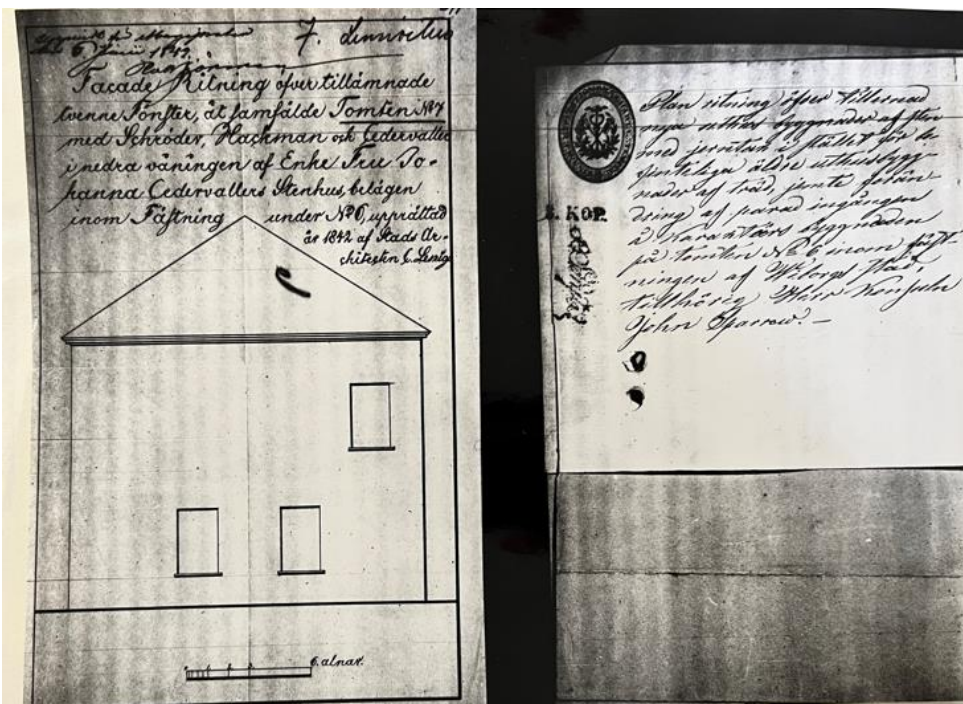 den 6 Junii 1842.
Facade Ritning öfver tillämnade
tvenne Fönster, åt samfälde Tomten № 7
med Schröder, Hackman och Cedervaller
i nedra våningen af Enke Fru Jo-
hanna Cedervallers Stenhus, belägen
inom Fästning under № 6, upprättad
år 1842 af Stads Ar-
chitecten C. Leszig
6. alnar.
Plan ritning öfver tillernad
nya uthus byggnader af sten
med jerntak i stället för be
finteliga äldre uthusbygg-
nader af träd, jemte förän-
dring af parad ingången
å Karaktärs byggnaden
på tomten № 6 inom fäst-
ningen af Wiborgs stad,
tillhörig Herr Konsuln
John Sparrow. —
KOP.